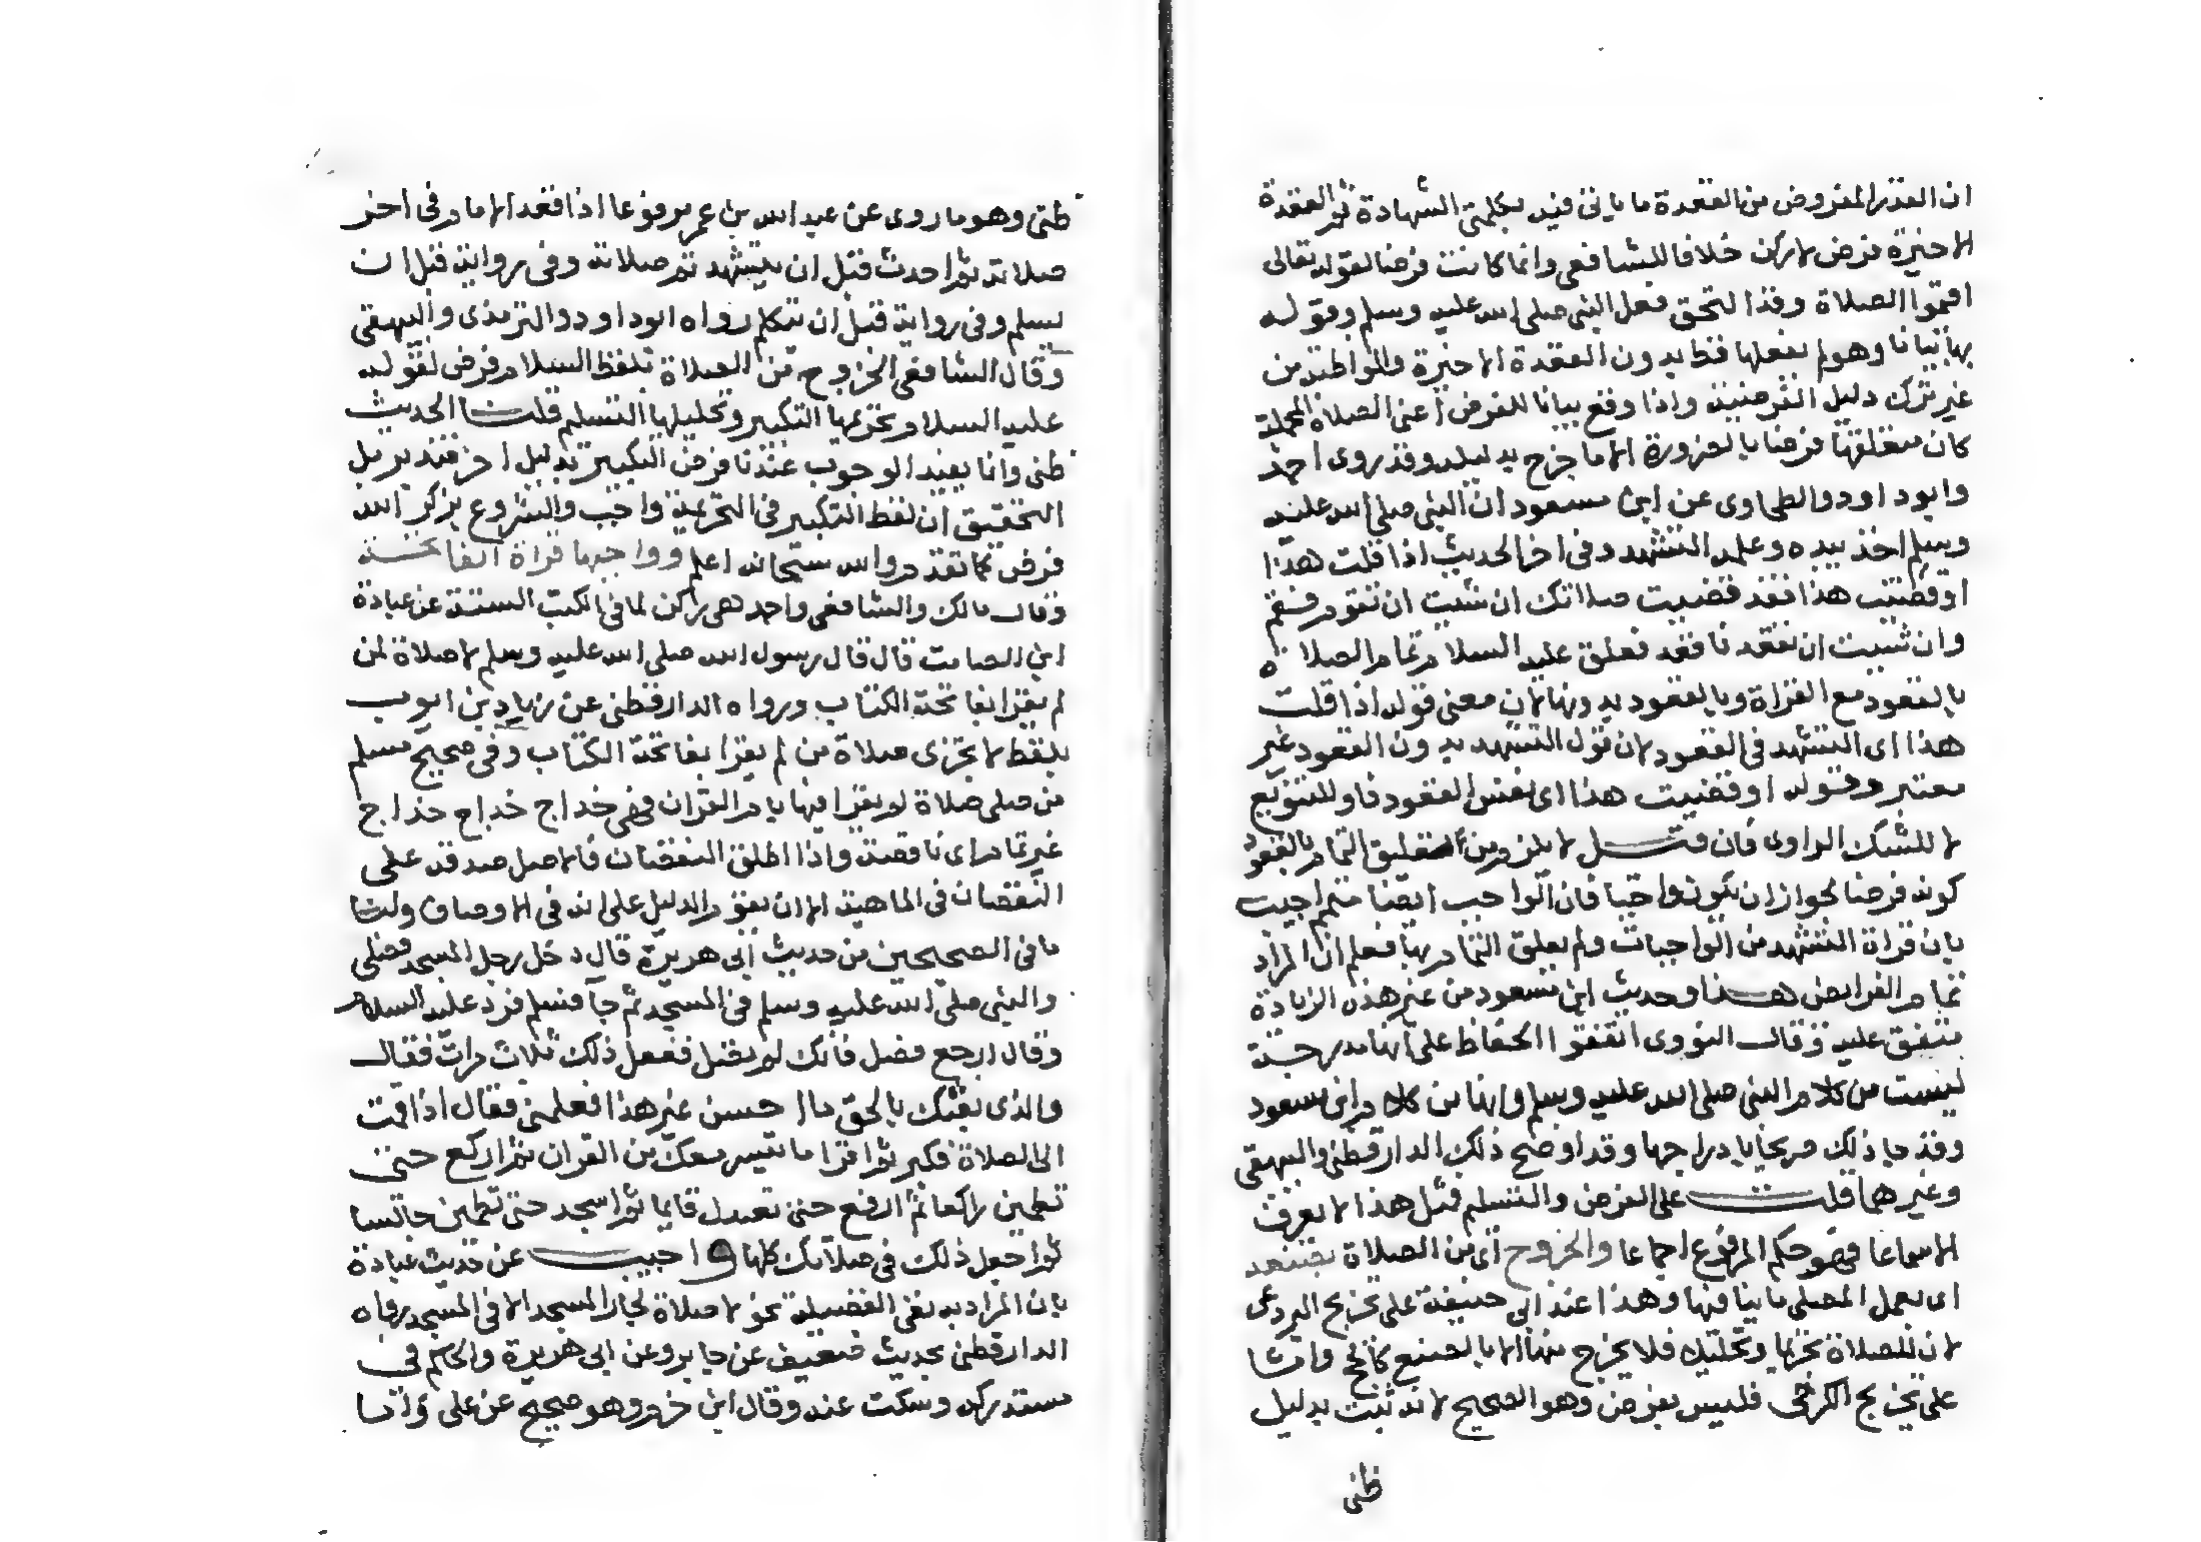 ان القدر المفروض من القعدة ما ياتى فيه بكلمتى الشهادة ثم القعدة
الاخيرة فرض لا ركن خلافا للشافعى وانما كانت فرضا لقوله تعالى
اقيموا الصلاة وقد التحق فعل النبى صلى الله عليه وسلم وقوله
بها بيانا وهو لم يفعلها قط بدون القعدة الاخيرة والمواظبة من
غير ترك دليل الفرضية واذا وقع بيانا للفرض اعنى الصلاة المجملة
كان متعلقها فرضا بالضرورة الا ما خرج بدليله وقد روى احمد
وابو داود والطحاوى عن ابن مسعود ان النبى صلى الله عليه
وسلم اخذ بيده وعلمه التشهد وفى اخر الحديث اذا قلت هذا
او قضيت هذا فقد قضيت صلاتك ان شيت ان تقوم فقم
وان شيت ان تقعد فاقعد فعلق عليه السلام تمام الصلاة
بالقعود مع القراة وبالقعود بدونها لان معنى قوله اذا قلت
هذا اى التشهد فى القعود لان قول التشهد بدون القعود غير
معتبر وقوله او قضيت هذا اى نفس القعود فاو للتنويع
لا للشك الراوى فان قيل لا يلزم من تعليق التمام بالقعود
كونه فرضا لجواز ان يكون واجبا فان الواجب ايضا متمم اجيب
بان قراة التشهد من الواجبات ولم يعلق التمام بها فعلم ان المراد
تمام الفرايض هذا وحديث ابن مسعود من غير هذه الزيادة
متفق عليه وقال النووى اتفقوا الحفاظ على انها مدرجة
ليست من كلام النبى صلى الله عليه وسلم وانها من كلام ابن مسعود
وقد جا ذلك صريحا بادراجها وقد اوضح ذلك الدارقطنى والبيهقى
وغيرهما قلت على الفرض والتسليم فمثل هذا لا يعرف
الا سماعا فهو حكم المرفوع اجماعا والخروج اى من الصلاة بصنعه
اى بعمل المصلى ما ينافيها وهذا عند ابى حنيفة على تخريج البردعى
لان للصلاة تحريما وتحليلا فلا يخرج منها الا بالصنع كالحج واما
على تخريج الكرخى فليس بفرض وهو الصحيح لانه ثبت بدليل
ظنى
ظنى وهو ما روى عن عبد الله بن عمر مرفوعا اذا قعد الامام فى اخر
صلاته ثم احدث قبل ان يتشهد تم صلاته وفى رواية قبل ان
يسلم وفى رواية قبل ان يتكلم رواه ابو داود والترمذى والبيهقى
وقال الشافعى الخروج من الصلاة بلفظ السلام فرض لقوله
عليه السلام تحريمها التكبير وتحليلها التسليم قلنا الحديث
ظنى وانما يفيد الوجوب عندنا فرض التكبير بدليل اخر فيه بل
التحقيق ان لفظ التكبير فى التحريمة واجب والشروع بذكر الله
فرض كما تقدم والله سبحانه اعلم وواجبها قراة الفاتحة
وقال مالك والشافعى واحمد هى ركن لما فى الكتب الستة عن عبادة
ابن الصامت قال قال رسول الله صلى الله عليه وسلم لا صلاة لمن
لم يقرا بفاتحة الكتاب ورواه الدارقطنى عن زياد بن ايوب
بلفظ لا تجزى صلاة من لم يقرا بفاتحة الكتاب وفى صحيح مسلم
من صلى صلاة لم يقرا فيها بام القران فهى خداج خداج خداج
غير تمام اى ناقصة واذا اطلق النقصان فالاصل صدقه على
النقصان فى الماهية الا ان يقوم الدليل على انه فى الاوصاف ولنا
ما فى الصحيحين من حديث ابى هريرة قال دخل رجل المسجد فصلى
والنبى صلى الله عليه وسلم فى المسجد ثم جا فسلم فرد عليه السلام
وقال ارجع فصل فانك لم تصل ففعل ذلك ثلاث مرات فقال
والذى بعثك بالحق ما احسن غير هذا فعلمنى فقال اذا قمت
الى الصلاة فكبر ثم اقرا ما تيسر معك من القران ثم اركع حتى
تطمين راكعا ثم ارفع حتى تعتدل قايما ثم اسجد حتى تطمين جالسا
ثم اجعل ذلك فى صلاتك كلها واجيب عن حديث عبادة
بان المراد به نفى الفضيلة نحو لا صلاة لجار المسجد الا فى المسجد رواه
الدارقطنى بحديث ضعيف عن جابر وعن ابى هريرة والحاكم فى
مستدركه وسكت عنه وقال ابن حزم وهو صحيح عن على واما